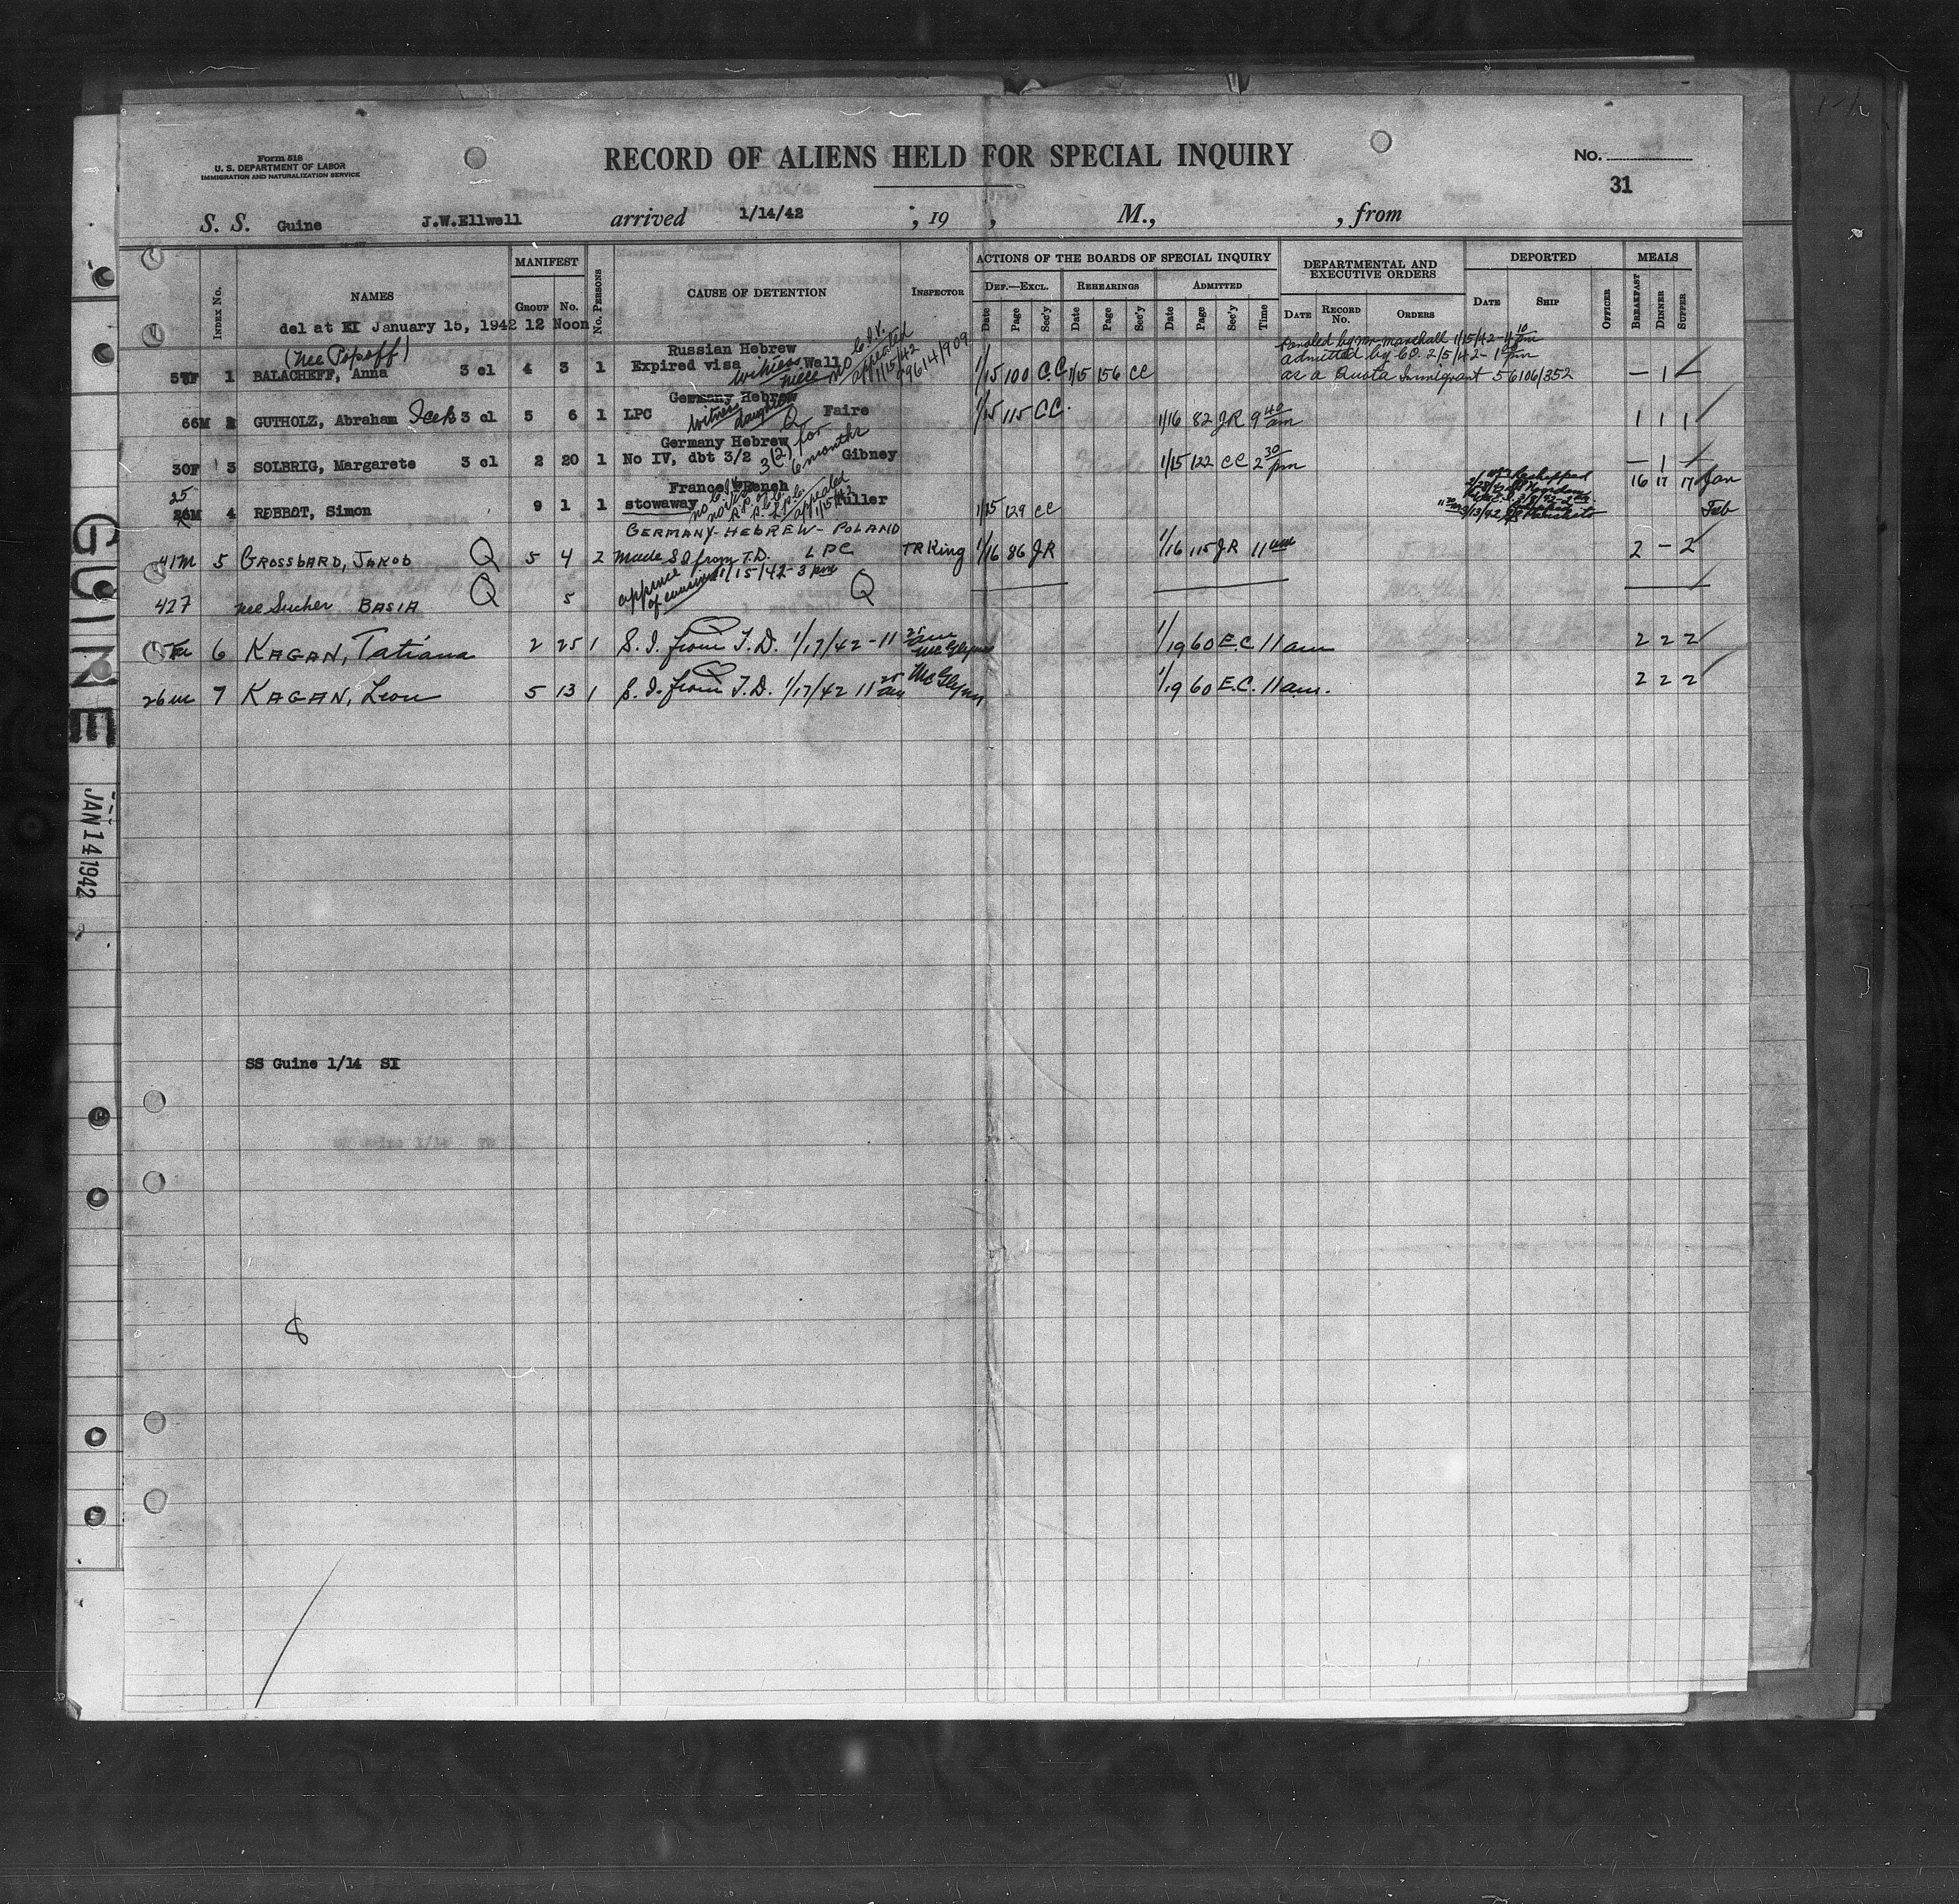 Form 518
U. S. DEPARTMENT OF LABOR
IMMIGRATION AND NATURALIZATION SERVICE
RECORD OF ALIENS HELD FOR SPECIAL INQUIRY
No.
31
S. S. Guine J.W.Ellwell arrived 1/14/42 , 19 , M., , from
Index No. NAMES MANIFEST Group No. No. Persons CAUSE OF DETENTION Inspector ACTIONS OF THE BOARDS OF SPECIAL INQUIRY DEPARTMENTAL AND EXECUTIVE ORDERS DEPORTED MEALS
Def.—Excl. Rehearings Admitted
Date Page Sec'y Date Page Sec'y Date Page Sec'y Time Date Record No. Orders Date Ship Officer Breakfast Dinner Supper
del at EI January 15, 1942 12 Noon
(nee Popoff) Russian Hebrew
F 1 BALACHEFF, Anna 3 cl 4 3 1 Expired visa witness niece Wall no C.I.V. appealed 1/15/42 99614/909 1/15 100 C.C 1/15 156 CC
Paroled by Mr. Marshall 1/15/42 - 4 10 pm
admitted by CO. 2/5/42 - 1 pm
as a Quota Immigrant 56106/352 — 1
Germany Hebrew
66M 2 GUTHOLZ, Abraham Icek 3 cl 5 6 1 LPC witness daughter Q Faire 1/15 115 CC 1/16 82 JR 9 40 am 1 1 1
Germany Hebrew
30F 3 SOLBRIG, Margarete 3 cl 2 20 1 No IV, dbt 3/2 3(2) for 6 months Gibney 1/15 122 CC 2 30 pm — 1
France French
25
26M 4 REBBOT, Simon 9 1 1 stowaway appealed 1/15/42 Fuller 1/15 129 CC 16 17 17 Jan
Feb
GERMANY-HEBREW-POLAND
41M 5 GROSSBARD, JAKOB Q 5 4 2 Made SI from T.D. LPC TR King 1/16 86 JR 1/16 115 JR 11 am 2 - 2
1/15/42 - 3 pm
42F nee Sucher BASIA Q 5 of cousin Q
6 KAGAN, Tatiana 2 25 1 S. I. from T.D. 1/17/42 - 11 25 am McGlynn 1/19 60 E.C. 11 am 2 2 2
26m 7 KAGAN, Leon 5 13 1 S. I. from T.D. 1/17/42 11 25 am McGlynn 1/19 60 E.C. 11 am. 2 2 2
SS Guine 1/14 SI
8
GUINE
JAN 14 1942